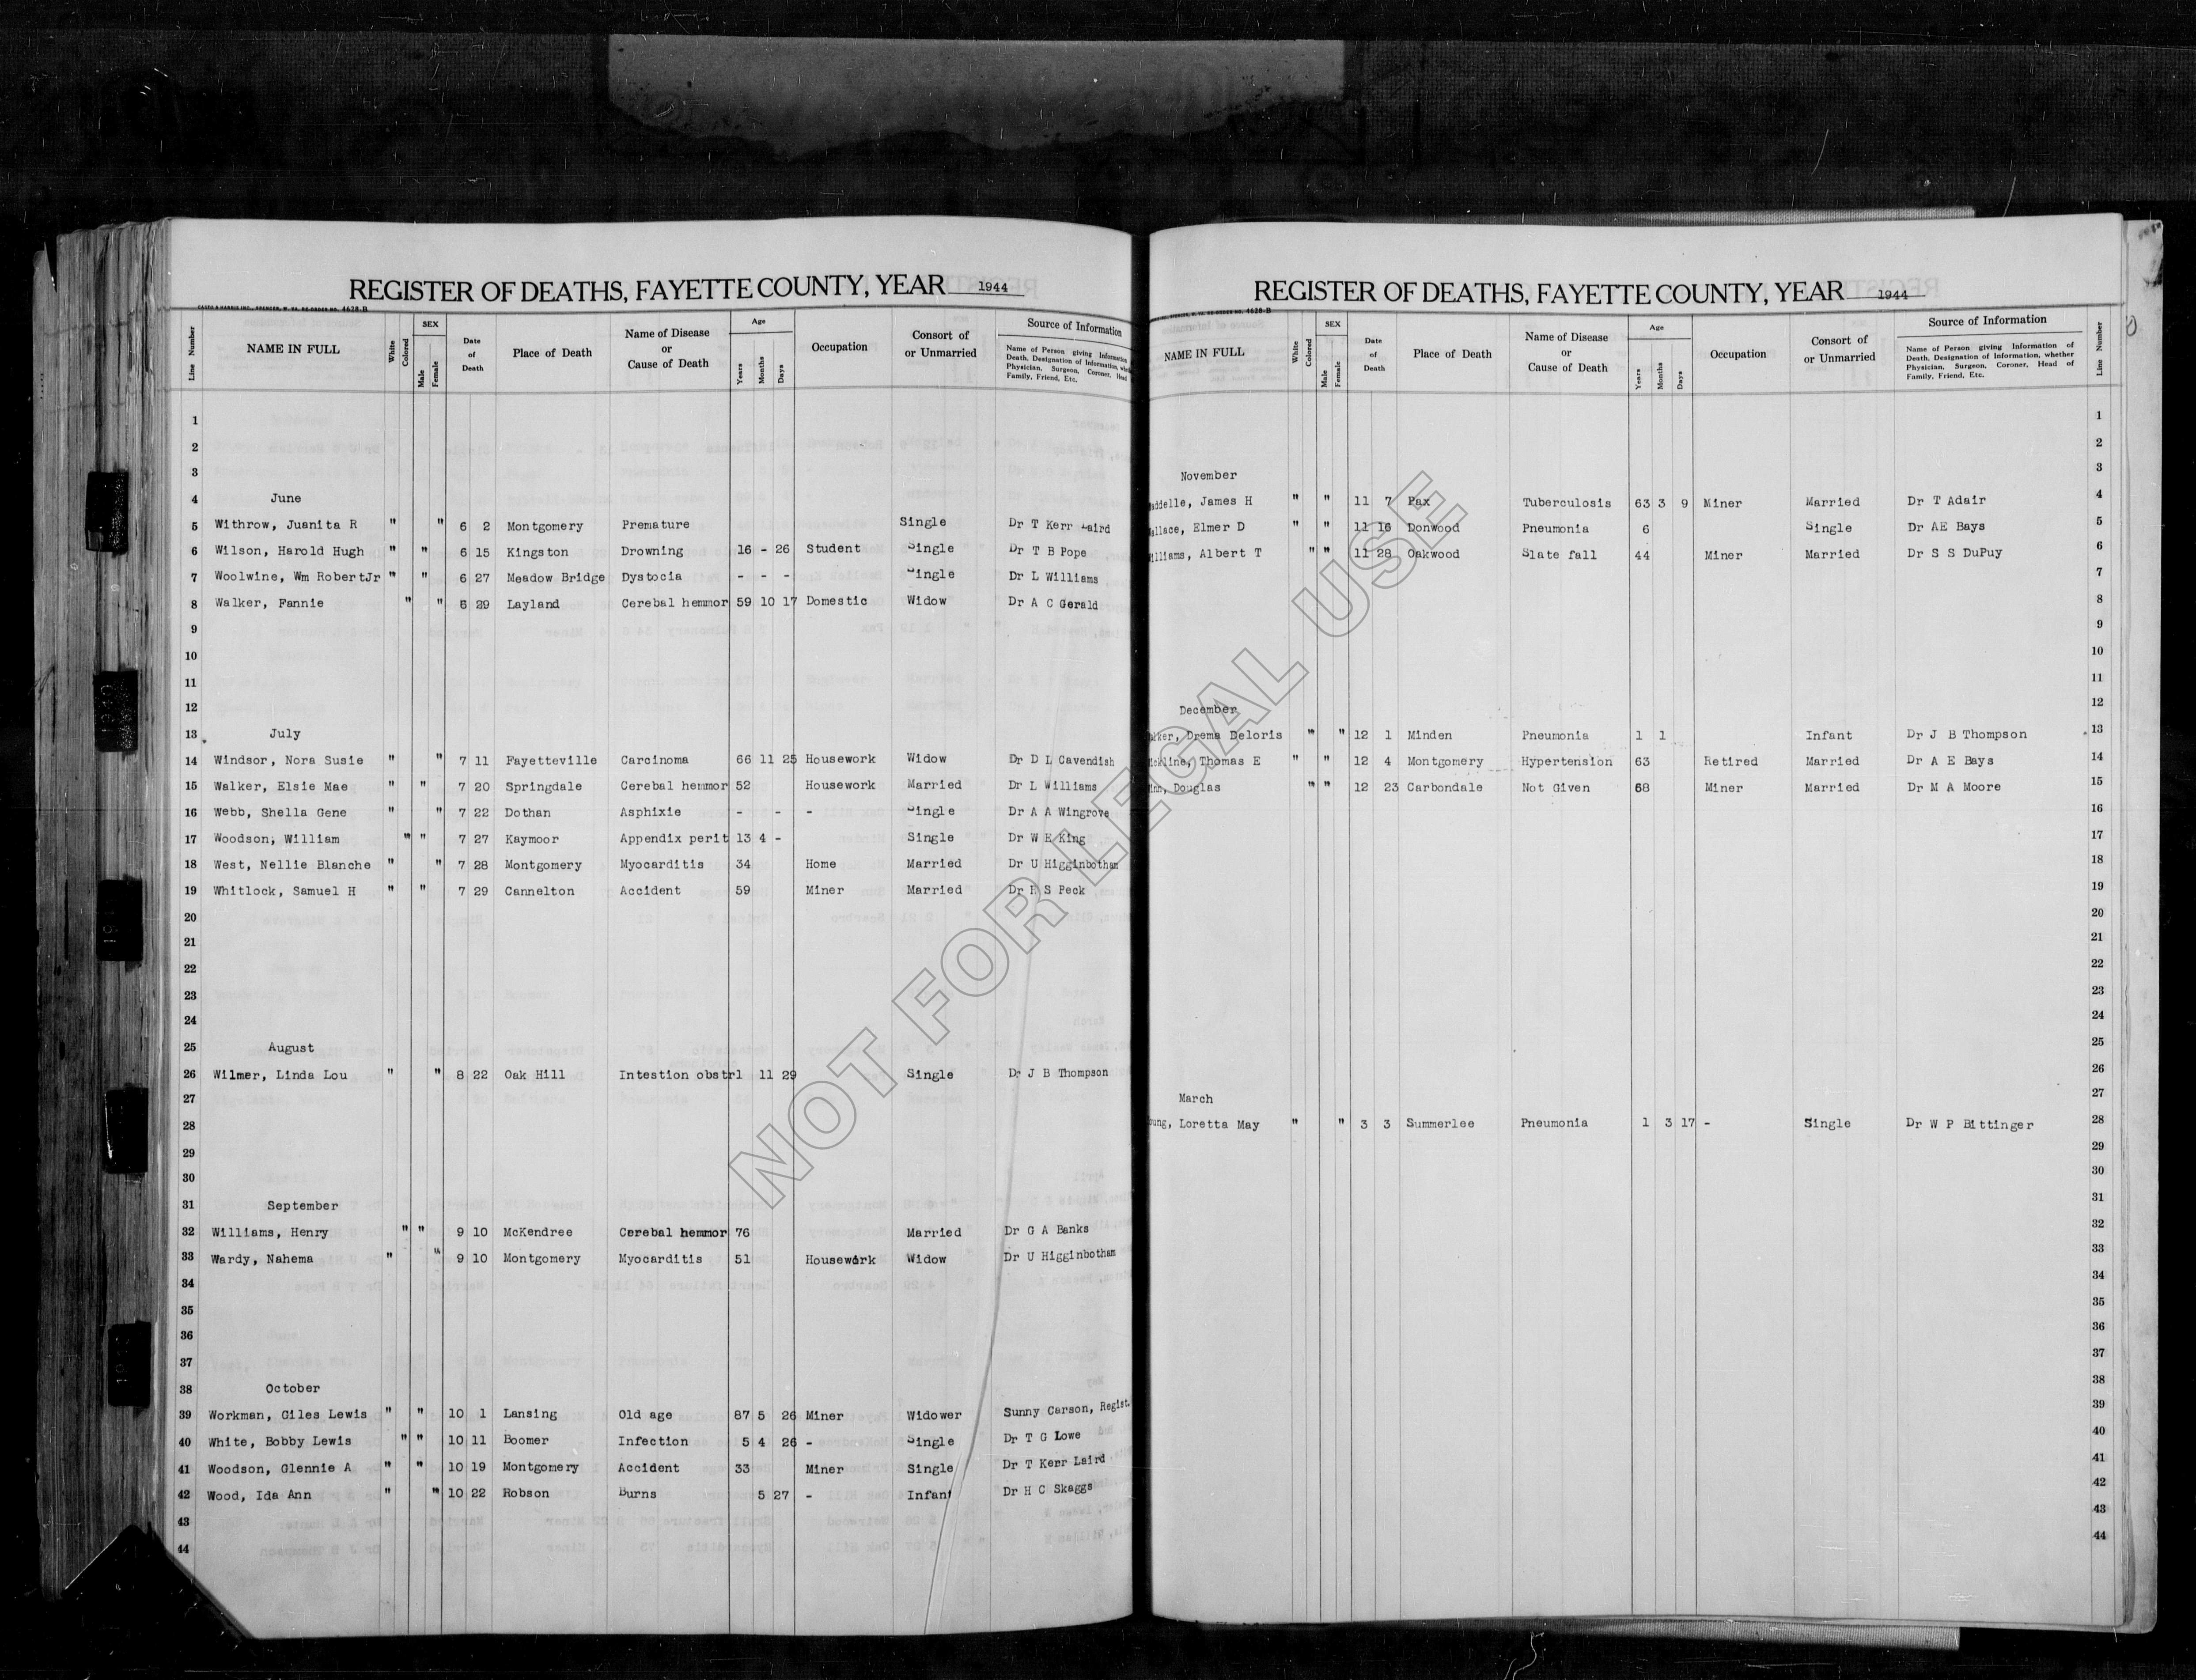 REGISTER OF DEATHS, FAYETTE COUNTY, YEAR 1944
CASTO & HARRIS INC., SPENCER, W. VA. RE-ORDER NO. 4628-B
Line Number NAME IN FULL White Colored SEX Male Female Date of Death Place of Death Name of Disease or Cause of Death Age Years Months Days Occupation Consort of or Unmarried Source of Information
Name of Person giving Information
Death, Designation of Information,
Physician, Surgeon, Coroner, Head
Family, Friend, Etc.
1
2
3
4 June
5 Withrow, Juanita R " " 6 2 Montgomery Premature Single Dr T Kerr Laird
6 Wilson, Harold Hugh " " 6 15 Kingston Drowning 16 - 26 Student Single Dr T B Pope
7 Woolwine, Wm RobertJr " " 6 27 Meadow Bridge Dystocia - - - Single Dr L Williams
8 Walker, Fannie " " 6 29 Layland Cerebal hemmor 59 10 17 Domestic Widow Dr A C Gerald
9
10
11
12
13 July
14 Windsor, Nora Susie " " 7 11 Fayetteville Carcinoma 66 11 25 Housework Widow Dr D L Cavendish
15 Walker, Elsie Mae " " 7 20 Springdale Cerebal hemmor 52 Housework Married Dr L Williams
16 Webb, Shella Gene " " 7 22 Dothan Asphixie - - - Single Dr A A Wingrove
17 Woodson, William " " 7 27 Kaymoor Appendix perit 13 4 - Single Dr W E King
18 West, Nellie Blanche " " 7 28 Montgomery Myocarditis 34 Home Married Dr U Higginbotham
19 Whitlock, Samuel H " " 7 29 Cannelton Accident 59 Miner Married Dr R S Peck
20
21
22
23
24
25 August
26 Wilmer, Linda Lou " " 8 22 Oak Hill Intestion obstr1 11 29 Single Dr J B Thompson
27
28
29
30
31 September
32 Williams, Henry " " 9 10 McKendree Cerebal hemmor 76 Married Dr G A Banks
33 Wardy, Nahema " " 9 10 Montgomery Myocarditis 51 Housework Widow Dr U Higginbotham
34
35
36
37
38 October
39 Workman, Giles Lewis " " 10 1 Lansing Old age 87 5 26 Miner Widower Sunny Carson, Regist.
40 White, Bobby Lewis " " 10 11 Boomer Infection 5 4 26 - Single Dr T G Lowe
41 Woodson, Glennie A " " 10 19 Montgomery Accident 33 Miner Single Dr T Kerr Laird
42 Wood, Ida Ann " " 10 22 Robson Burns 5 27 - Infant Dr H C Skaggs
43
44
REGISTER OF DEATHS, FAYETTE COUNTY, YEAR 1944
4628-B
NAME IN FULL White Colored SEX Male Female Date of Death Place of Death Name of Disease or Cause of Death Age Years Months Days Occupation Consort of or Unmarried Source of Information Line Number
Name of Person giving Information of
Death, Designation of Information, whether
Physician, Surgeon, Coroner, Head of
Family, Friend, Etc.
1
2
November 3
James H " " 11 7 Pax Tuberculosis 63 3 9 Miner Married Dr T Adair 4
Elmer D " " 11 16 Donwood Pneumonia 6 Single Dr AE Bays 5
Albert T " " 11 28 Oakwood Slate fall 44 Miner Married Dr S S DuPuy 6
7
8
9
10
11
December 12
Drema Deloris " " 12 1 Minden Pneumonia 1 1 Infant Dr J B Thompson 13
Thomas E " " 12 4 Montgomery Hypertension 63 Retired Married Dr A E Bays 14
Douglas " " 12 23 Carbondale Not Given 68 Miner Married Dr M A Moore 15
16
17
18
19
20
21
22
23
24
25
26
March 27
Loretta May " " 3 3 Summerlee Pneumonia 1 3 17 - Single Dr W P Bittinger 28
29
30
31
32
33
34
35
36
37
38
39
40
41
42
43
44
NOT FOR LEGAL USE